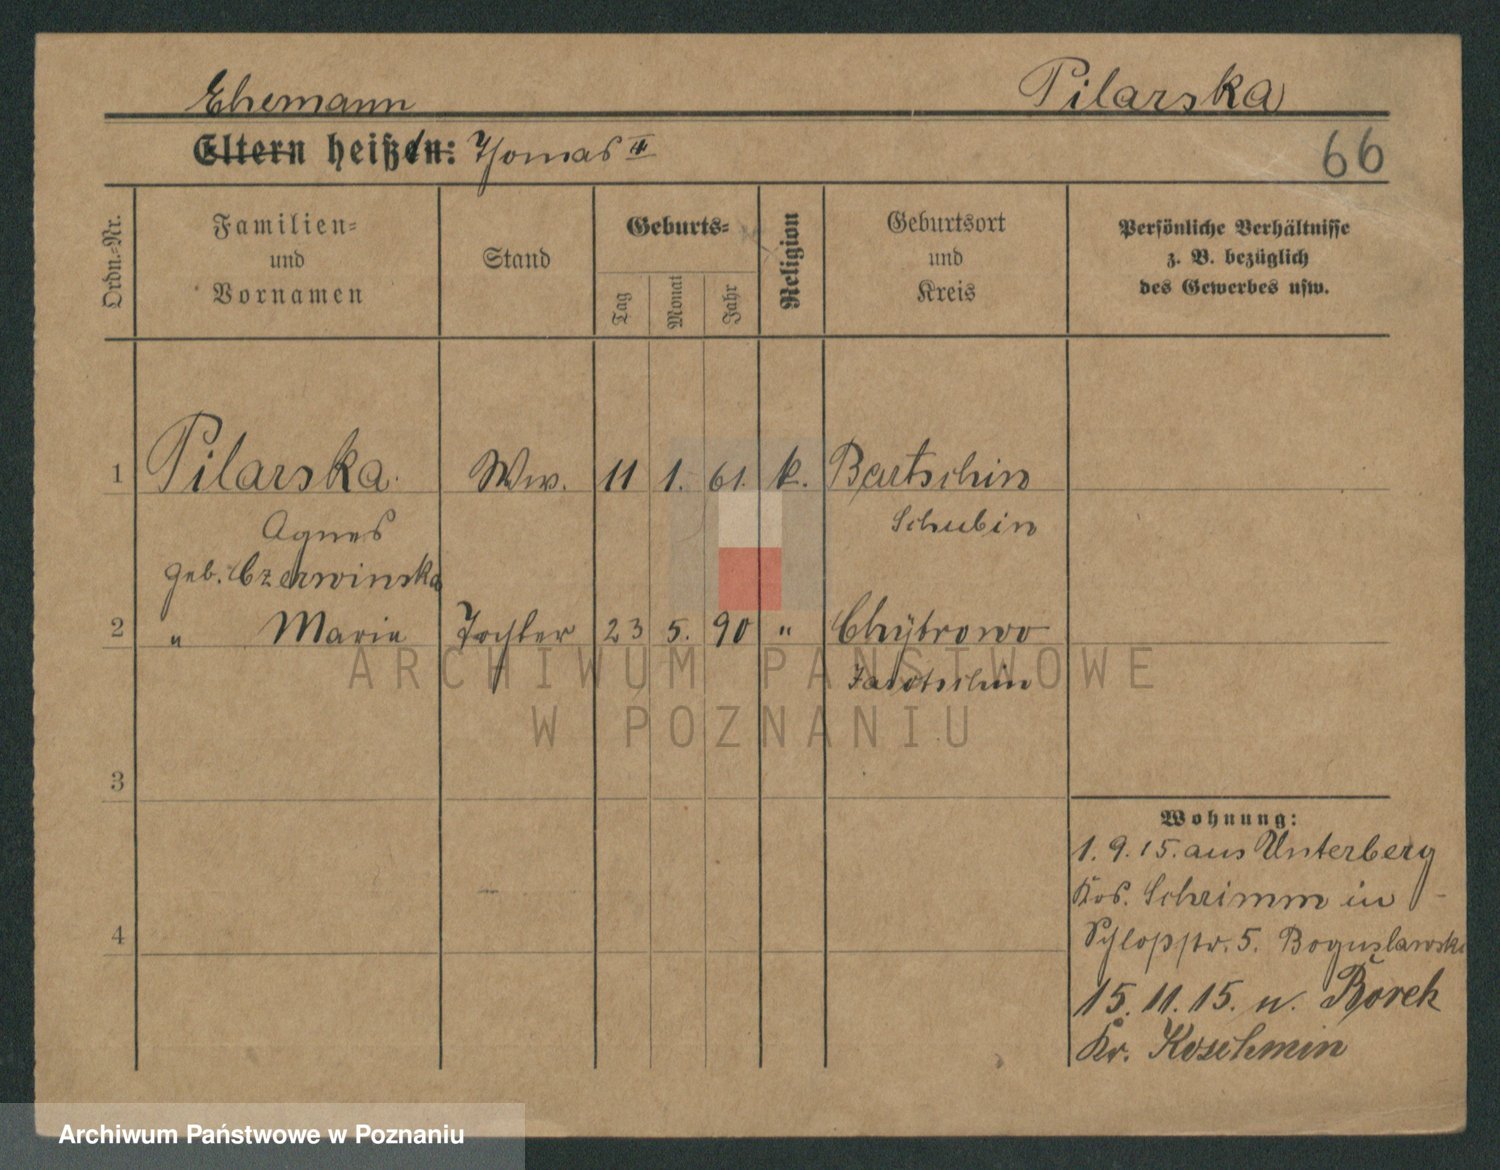 Ehemann Pilarska
Eltern heißen: Thomas II 66
Ordn.-Nr.
Familien-
und
Vornamen
Stand
Geburts-
Tag Monat Jahr
Religion
Geburtsort
und
Kreis
Persönliche Verhältnisse
z. B. bezüglich
des Gewerbes usw.
1 Pilarska. Ww. 11 1. 61. k. Bartschin
Agnes Schubin
geb. Czerwinska
2 " Marie Tochter 23 5. 90 " Chytrowo
Jarotschin
ARCHIWUM PAŃSTWOWE
W POZNANIU
3
4
Wohnung:
1. 9. 15. aus Unterberg
Schrimm in
Schloßstr. 5. Boguslawski
15. 11. 15. n. Borek
Kr. Koschmin
Archiwum Państwowe w Poznaniu